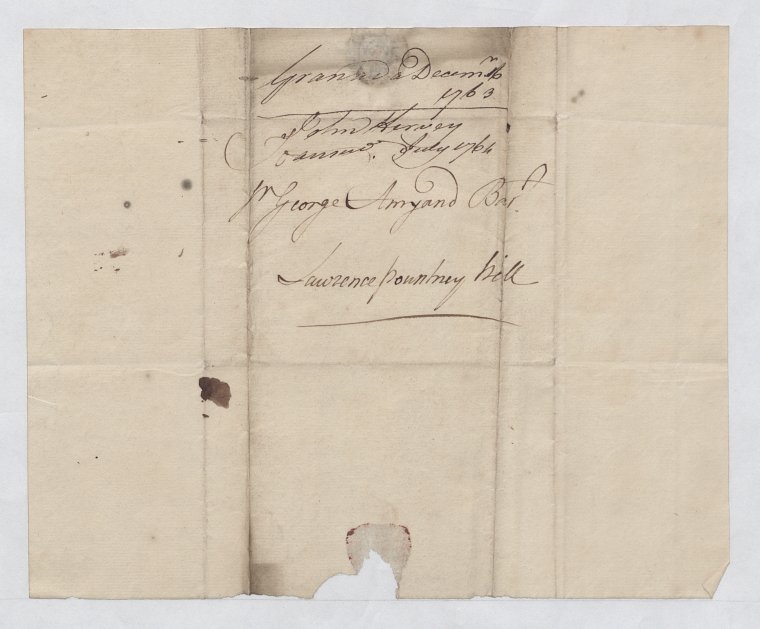 Granada Decemr 16
1763
John Harvey
July 1764
Sr George Amyand Bart
Lawrence pountney hill